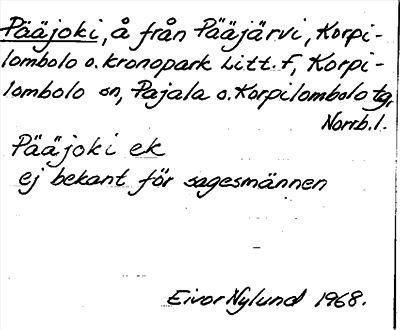 Pääjoki, å från Pääjärvi, Korpi-
lombolo o. kronopark Litt. F, Korpi-
lombolo sn, Pajala o. Korpilombolo tg,
Norrb. l.
Pääjoki ek
ej bekant för sagesmännen
Eivor Nylund 1968.